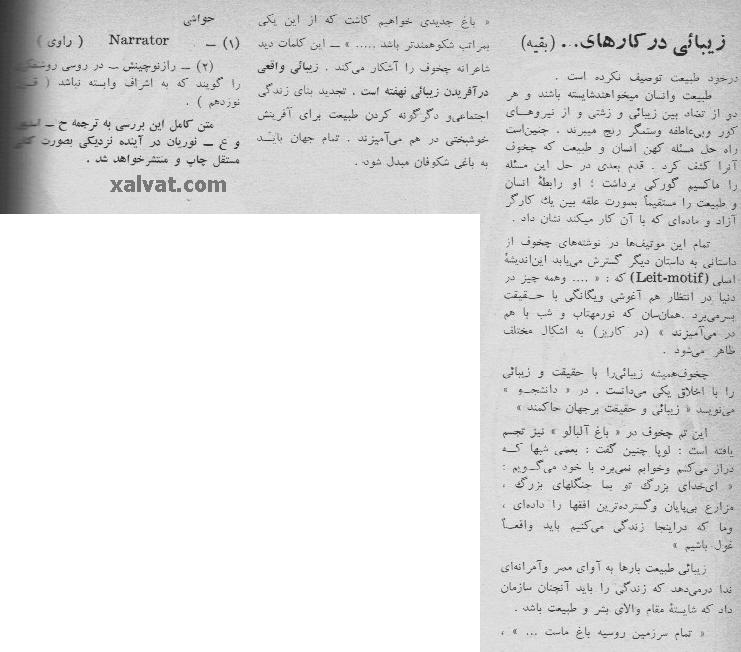 زیبائی در کارهای... (بقیه)
درخود طبیعت توصیف نکرده است .
طبیعت وانسان میخواهندشایسته باشند و هر
دو از تضاد بین زیبائی و زشتی و از نیروهــای
کور وبی‌عاطفه وستمگر رنج میبرند . چنین‌است
راه حل مسئله کهن انسان و طبیعت که چخوف
آنرا کشف کرد . قدم بعدی در حل این مسئله
را ماکسیم گورکی برداشت ؛ او رابطهٔ انسان
و طبیعت را مستقیماً بصورت علقه بین یك کارگر
آزاد و ماده‌ای که با آن کار میکند نشان داد .
تمام این موتیف‌ها در نوشته‌های چخوف از
داستانی به داستان دیگر گسترش می‌یابد این‌اندیشهٔ
اصلی (Leit-motif) که : « .... وهمه چیز در
دنیا در انتظار هم آغوشی ویگانگی با حــقیقت
بسرمی‌برد .همان‌سان که نورمهتاب و شب با هم
در می‌آمیزند » (در کاریز) به اشکال مختلف
ظاهر می‌شود .
چخوف‌همیشه زیبائی‌را با حقیقت و زیبائی
را با اخلاق یکی می‌دانست . در « دانشجــو »
می‌نویسد « زیبائی و حقیقت برجهان حاکمند »
این تم چخوف در « باغ آلبالو » نیز تجسم
یافته است : لوپا چنین گفت : بعضی شبها کــه
دراز می‌کشم وخوابم نمی‌برد با خود می‌گــویم :
« ای‌خدای بزرگ تو بما جنگلهای بزرگ ،
مزارع بی‌پایان وگسترده‌ترین افقها را داده‌ای ،
وما که دراینجا زندگی می‌کنیم باید واقعــاً
غول باشیم »
زیبائی طبیعت بارها به آوای مصر وآمرانه‌ای
ندا درمی‌دهد که زندگی را باید آنچنان سازمان
داد که شایستهٔ مقام والای بشر و طبیعت باشد .
« تمام سرزمین روسیه باغ ماست ... » ،
« باغ جدیدی خواهیم کاشت که از این یکی
بمراتب شکوهمندتر باشد ..... » ــ این کلمات دید
شاعرانه چخوف را آشکار می‌کند . زیبائی واقعی
درآفریدن زیبائی نهفته است . تجدید بنای زندگی
اجتماعی‌و دگرگونه کردن طبیعت برای آفرینش
خوشبختی در هم می‌آمیزند . تمام جهان بایــد
به باغی شکوفان مبدل شود .
حواشی
(۱) ــ Narrator ( راوی )
(۲) ــ رازنوچینش ــ در روسی
را گویند که به اشراف وابسته نباشد (
نوزدهم ) .
متن کامل این بررسی به ترجمه ح ــ
و ع ــ نوریان در آینده نزدیکی بصورت
مستقل چاپ و منتشرخواهد شد .
xalvat.com